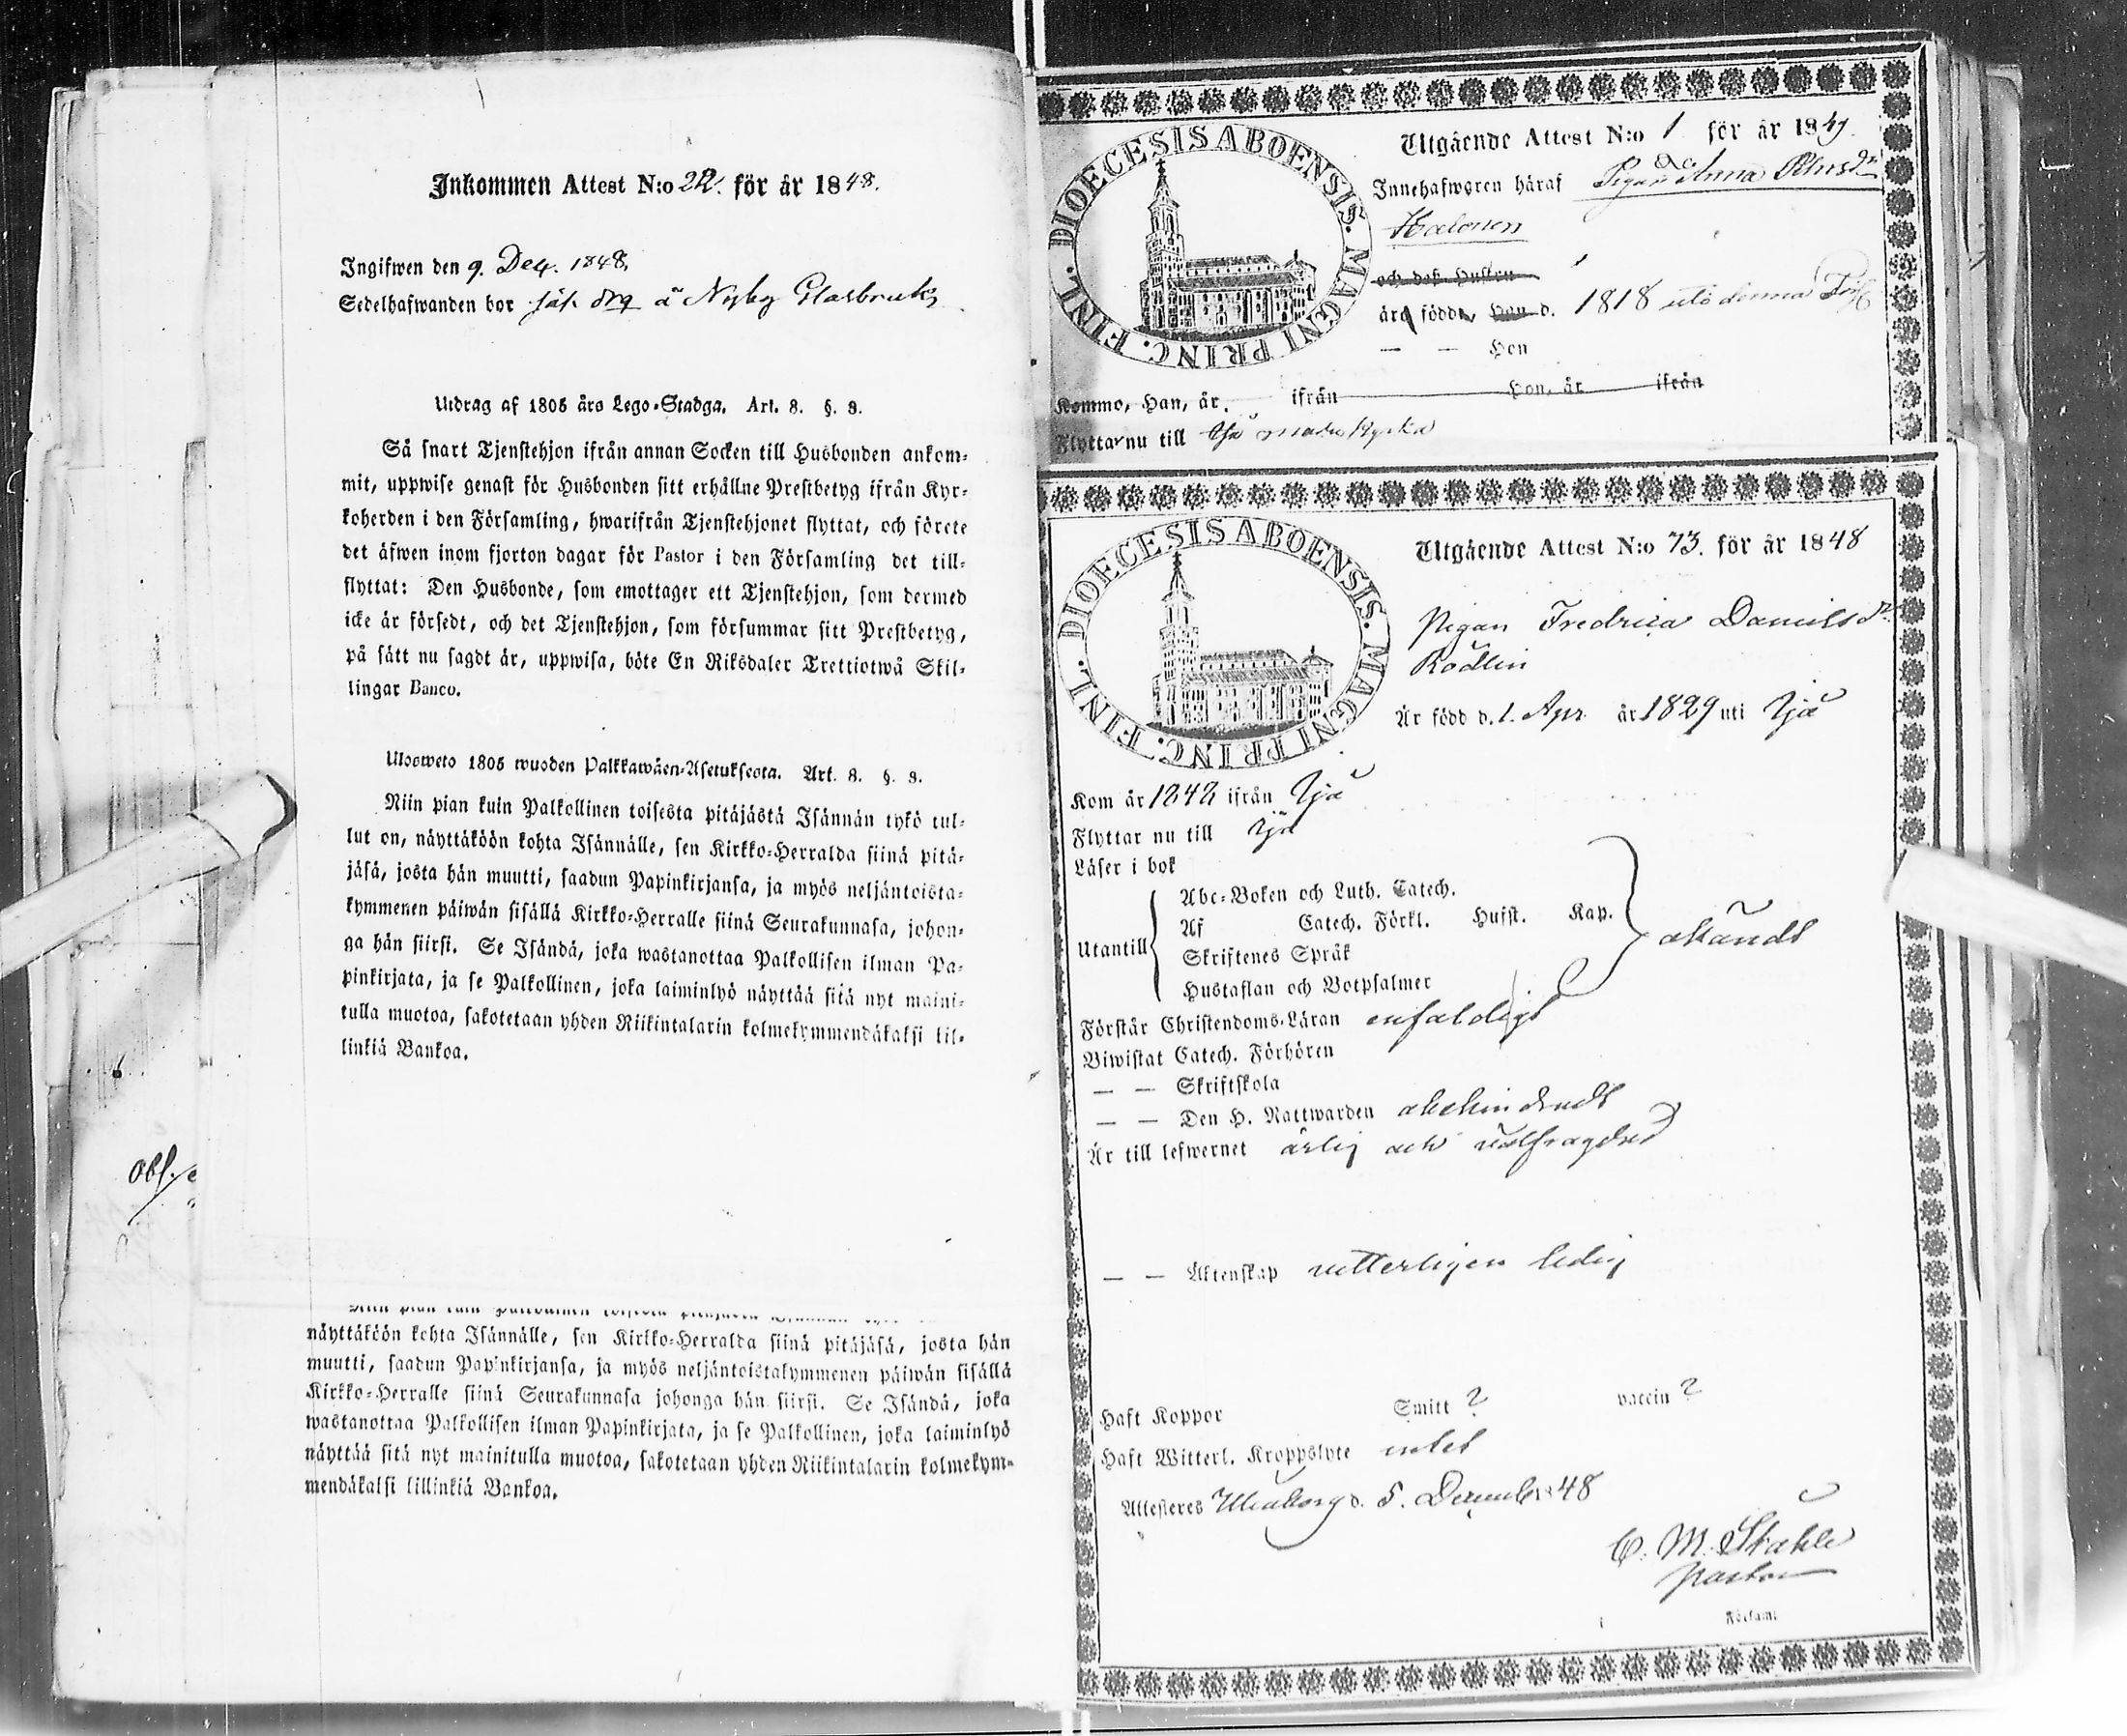 Inkommen Attest N:o 22. för år 1848.
Ingifwen den 9. Dec. 1848.
Sedelhafwanden bor å Nyby Glasbruk
Utdrag af 1805 års Lego-Stadga. Art. 8. §. 8.
Så snart Tjenstehjon ifrån annan Socken till Husbonden ankom-
mit, uppwise genast för Husbonden sitt erhållne Prestbetyg ifrån Kyr-
koherden i den Församling, hwarifrån Tjenstehjonet flyttat, och förete
det äfwen inom fjorton dagar för Pastor i den Församling det till-
flyttat: Den Husbonde, som emottager ett Tjenstehjon, som dermed
icke är försedt, och det Tjenstehjon, som försummar sitt Prestbetyg,
på sätt nu sagdt är, uppwisa, böte En Riksdaler Trettiotwå Skil-
lingar Banco.
Ulosweto 1805 wuoden Palkkawäen-Asetuksesta. Art. 8. §. 8.
Niin pian kuin Palkollinen toisesta pitäjästä Isännän tykö tul-
lut on, näyttäköön kohta Isännälle, sen Kirkko-Herralda siinä pitä-
jäsä, josta hän muutti, saadun Papinkirjansa, ja myös neljäntoista-
kymmenen päiwän sisällä Kirkko-Herralle siinä Seurakunnasa, johon-
ga hän siirsi. Se Isändä, joka wastanottaa Palkollisen ilman Pa-
pinkirjata, ja se Palkollinen, joka laiminlyö näyttää sitä nyt maini-
tulla muotoa, sakotetaan yhden Riikintalarin kolmekymmendäkaksi kil-
linkiä Bankoa.
näyttäköön kohta Isännälle, sen Kirkko-Herralda siinä pitäjäsä, josta hän
muutti, saadun Papinkirjansa, ja myös neljäntoistakymmenen päiwän sisällä
Kirkko-Herralle siinä Seurakunnasa johonga hän siirsi. Se Isändä, joka
wastanottaa Palkollisen ilman Papinkirjata, ja se Palkollinen, joka laiminlyö
näyttää sitä nyt mainitulla muotoa, sakotetaan yhden Riikintalarin kolmekym-
mendäkaksi killinkiä Bankoa.
DIOECESIS ABOENSIS. MAGNI PRINC. FINL.
Utgående Attest N:o 1 för år 1849.
Innehafwaren häraf Pigan Anna
och deß hustru
äro födde, Han d. 1818
— — Hon
Kommo, Han, år ifrån Hon, år ifrån
Flyttar nu till Ijå moder kyrka
DIOECESIS ABOENSIS. MAGNI PRINC. FINL.
Utgående Attest N:o 73. för år 1848
Pigan Fredrica Danielsdr
Rödlin
Är född d. 1. Apr. år 1829 uti Ijå
Kom år 1848 ifrån Ijå
Flyttar nu till Ijå
Läser i bok
Utantill
Abc-Boken och Luth. Catech.
Af Catech. Förkl. Hufst. Kap.
Skriftenes Språk
Hustaflan och Botpsalmer
Förstår Christendoms-Läran enfaldigt
Biwistat Catech. Förhören
— — Skriftskola
— — Den H. Nattwarden obehindradt
Är till lefwernet ärlig och välfrägdad
— — Äktenskap vetterligen ledig
Haft Koppor Smitt ? vaccin ?
Haft Witterl. Kroppslyte intet
Attesteres Uleåborg d. 5. December 1848
C. M. Ståhle
Pastor
Församl